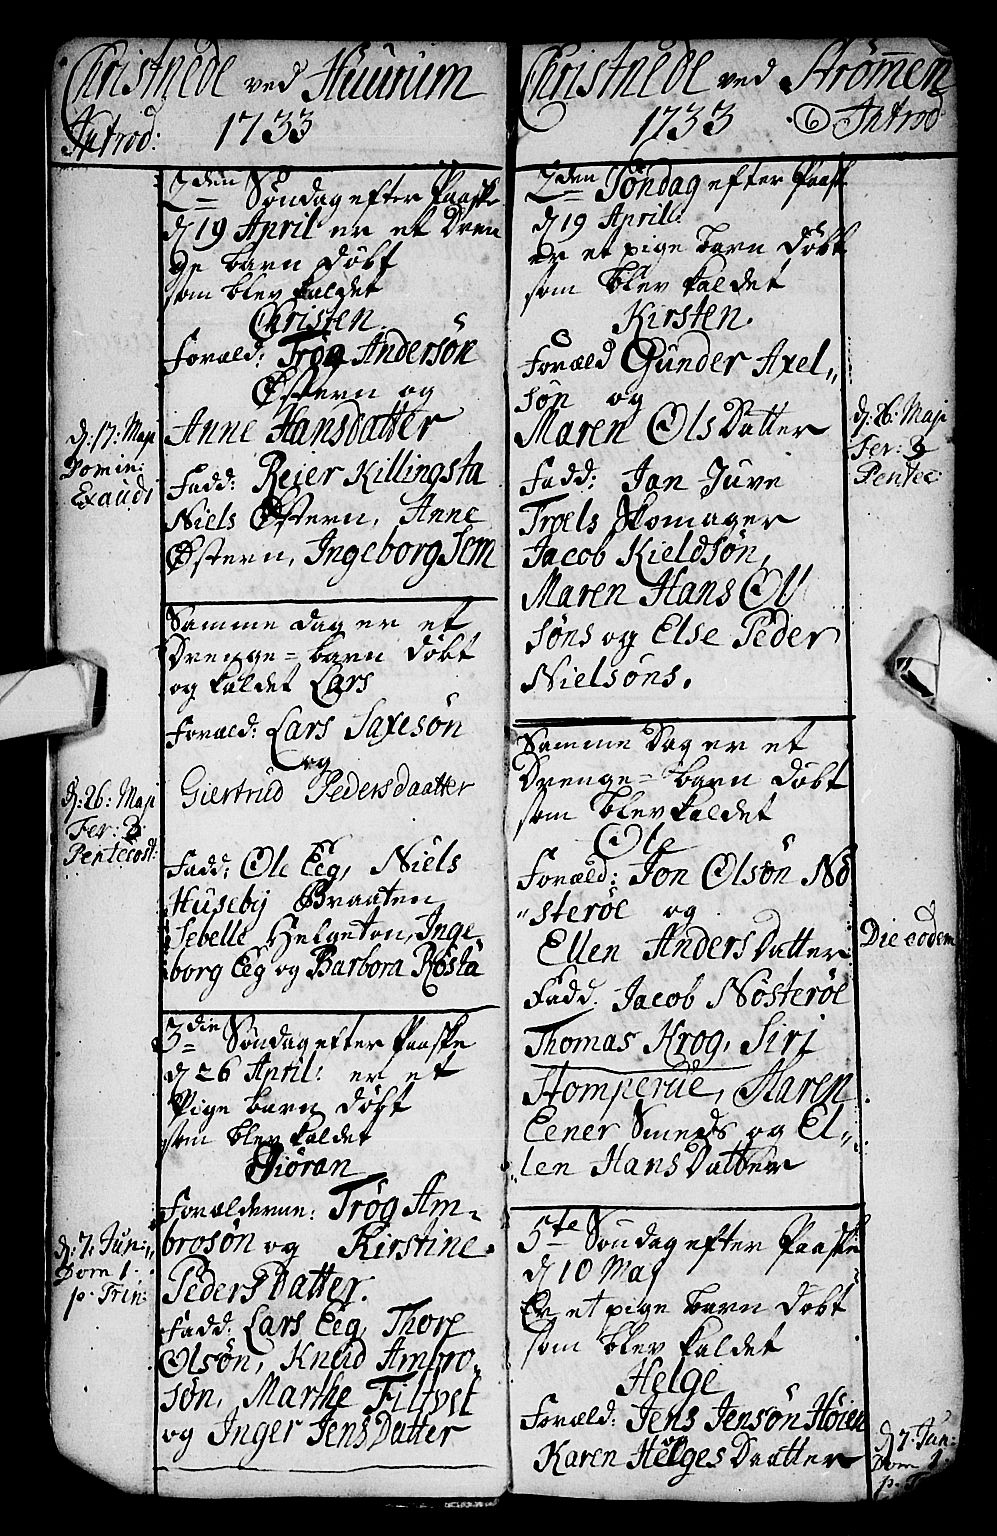 Christnede ved Huurum
Introd: 1733
2den Søndag efter Paaske
d 19 April er et Dren
ge barn døbt
som blev kaldet
Christen.
Foræld: Trøg Andersøn
Østern og
Anne Hansdatter
Fadd: Reier Killingsta
Niels Østern, Anne
Østern, Ingeborg Sem
d: 17: Maji
Domin:
Exaudi
Samme dag er et
Drenge=barn døbt
og kaldet Lars
Foræld: Lars Saxesøn
og
Giertrud Pedersdaatter
Fadd: Ole Eeg, Niels
Huseby Braaten
Sebelle Helgeton, Inge
borg Eeg og Barbora Røstå
d: 26: Maji
Fer: 3
Pentecost:
3die Søndag efter Paaske
d 26 April: er et
Pige barn døbt
som blev kaldet
Giøran
Forælderne: Trøg Am-
brosøn og Kirstine
Peders Datter.
Fadd: Lars Eeg, Thore
Olsøn, Knud Ambro-
søn, Marthe Filtvet
og Inger Jens Datter
d: 7: Jun:
Dom 1.
p. Trin:
Christnede ved Strømen
1733 Introd
2den Søndag efter Paask
d 19 April:
er et pige barn døbt
som blev kaldet
Kirsten.
Foræld Gunder Axel„
søn og
Maren Ols Datter
Fadd: Jan Juve
Troels Skomager
Jacob Kieldsøn,
Maren Hans Ol
søns og Else Peder
Nielsøns.
d: 26: Maji
Fer: 3
Pentec:
Samme Dag er et
Drenge=barn døbt
som blev kaldet
Ole
Foræld: Jon Olsøn Nø
„sterøe og
Ellen Anders Datter
Fadd. Jacob Nøsterøe
Thomas Krog, Siri
Stomperue, Karen
Eener Smeds og El„
len Hans Datter
Die eodem
5te Søndag efter Paaske
d 10 Maj
Er et pige barn døbt
som blev kaldet
Helge
Foræld: Jens Jensøn Høien
og
Karen Helges Daatter
d 7. Jun:
Dom 1.